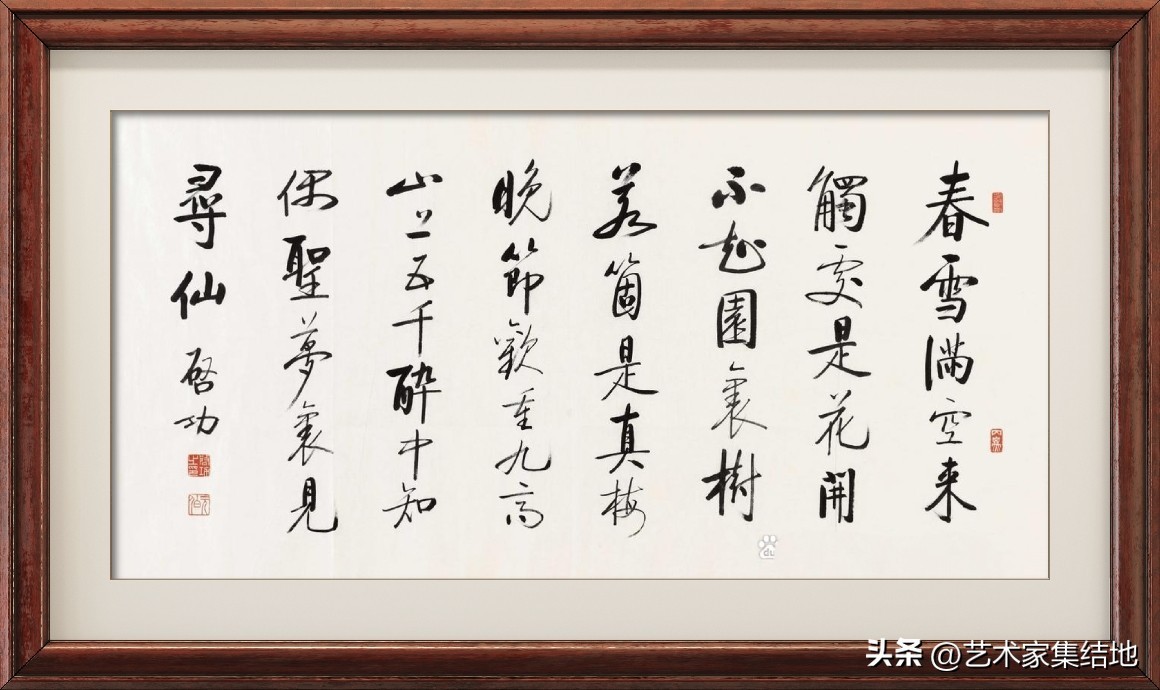 春雪滿空来
觸處是花開
不園裏樹
若箇是真梅
晚節歡重九高
山上五千醉中知
偶聖夢裏見
尋仙 啟功
du
头条 @艺术家集结地